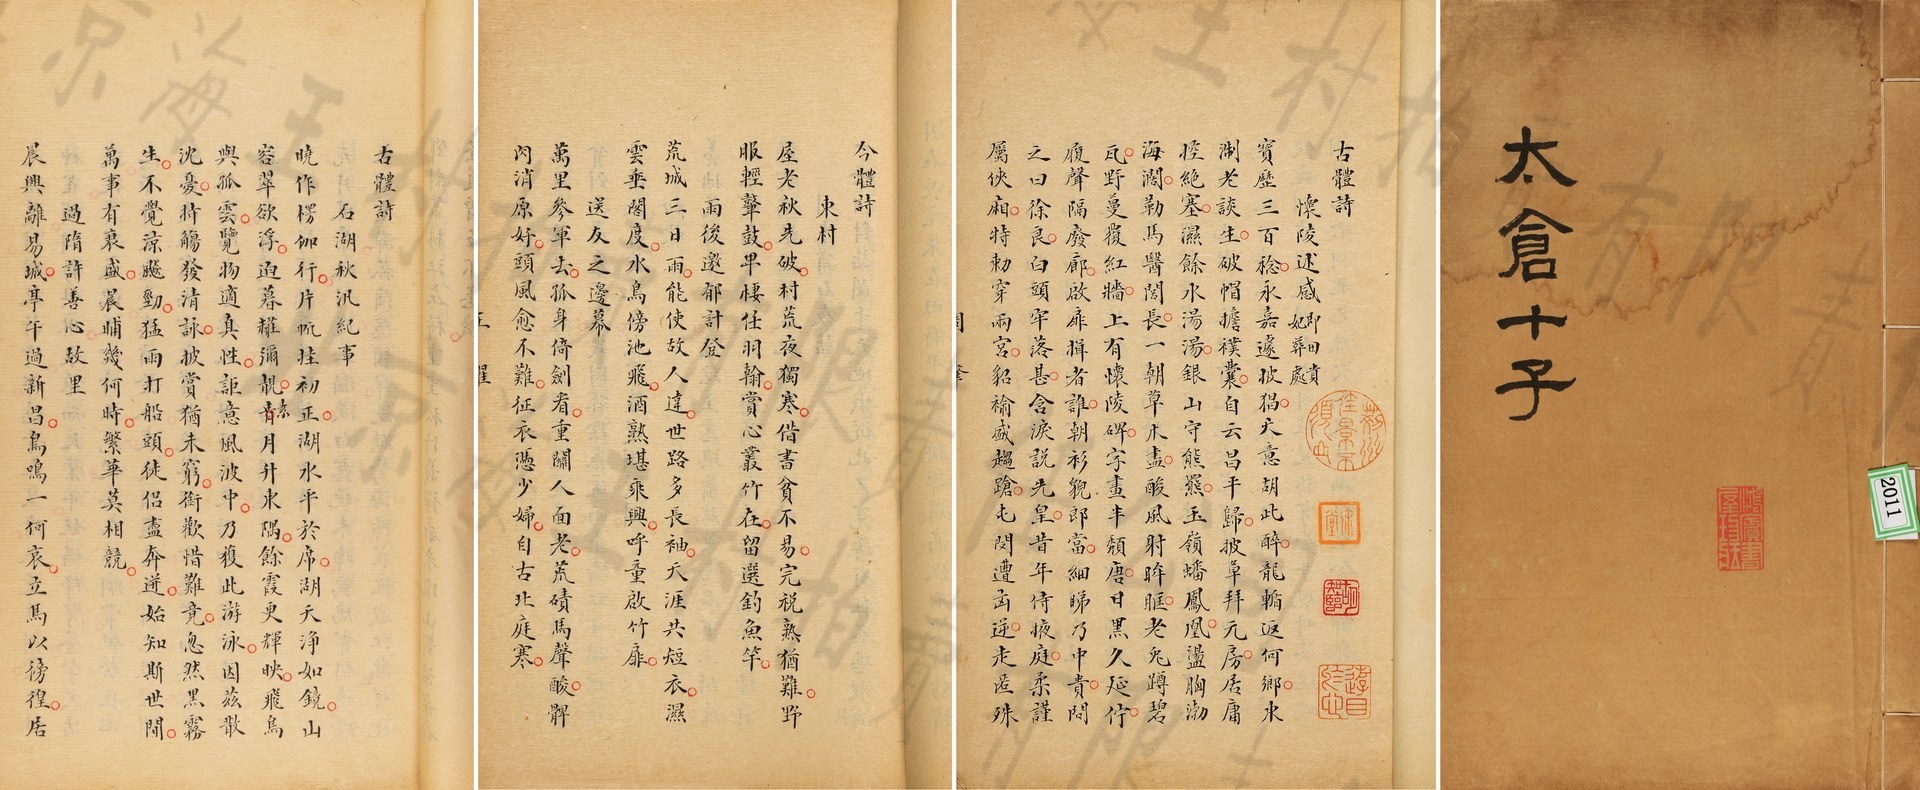 太倉十子
2011
古體詩
懷陵述感 即田貴妃葬處
寶歷三百稔永嘉遽披猖天意胡此醉龍輀返何鄉水
淛老談生破帽擔襆囊自云昌平歸披草拜元房居庸
控絶塞濕餘水湯湯銀山守熊羆玉嶺蟠鳳凰盪胸渤
海濶勒馬醫閭長一朝草木盡酸風射眸眶老兎蹲碧
瓦野蔓覆紅牆上有懷陵碑字畫半頽唐日黑久延佇
履聲隔廢廊啟扉揖者誰朝衫貌郎當細睇乃中貴問
之曰徐良白頭牢落甚含淚説先皇昔年侍掖庭柔謹
屬俠廂特勅穿兩宮貂褕盛趨蹌屯閔遭凶逆走匿殊
今體詩
東村
屋老秋先破村荒夜獨寒借書貧不易完税熟猶難野
服輕鼙鼓早棲任羽翰賞心叢竹在留選釣魚竿
雨後邀郁計登
荒城三日雨能使故人違世路多長袖天涯共短衣濕
雲垂閣度水鳥傍池飛酒熟堪乘興呼童啟竹扉
送友之邊幕
萬里參軍去孤身倚劍看重關人面老荒磧馬聲酸髀
肉消原好頭風愈不難征衣憑少婦自古北庭寒
古體詩
石湖秋汎紀事
曉作楞伽行片帆挂初正湖水平於席湖天淨如鏡山
容翠欲浮迫暮権彌靚青月升東隅餘霞更輝映飛鳥
與孤雲覽物適真性詎意風波中乃獲此游泳因兹散
沈憂持觴發清詠披賞猶未窮銜歡惜難竟忽然黑霧
生不覺涼颷勁猛雨打船頭徒侣盡奔迸始知斯世間
萬事有衰盛晨晡幾何時繁華莫相競
過隋許善心故里
晨興離易城亭午過新昌鳥鳴一何哀立馬以徬徨居